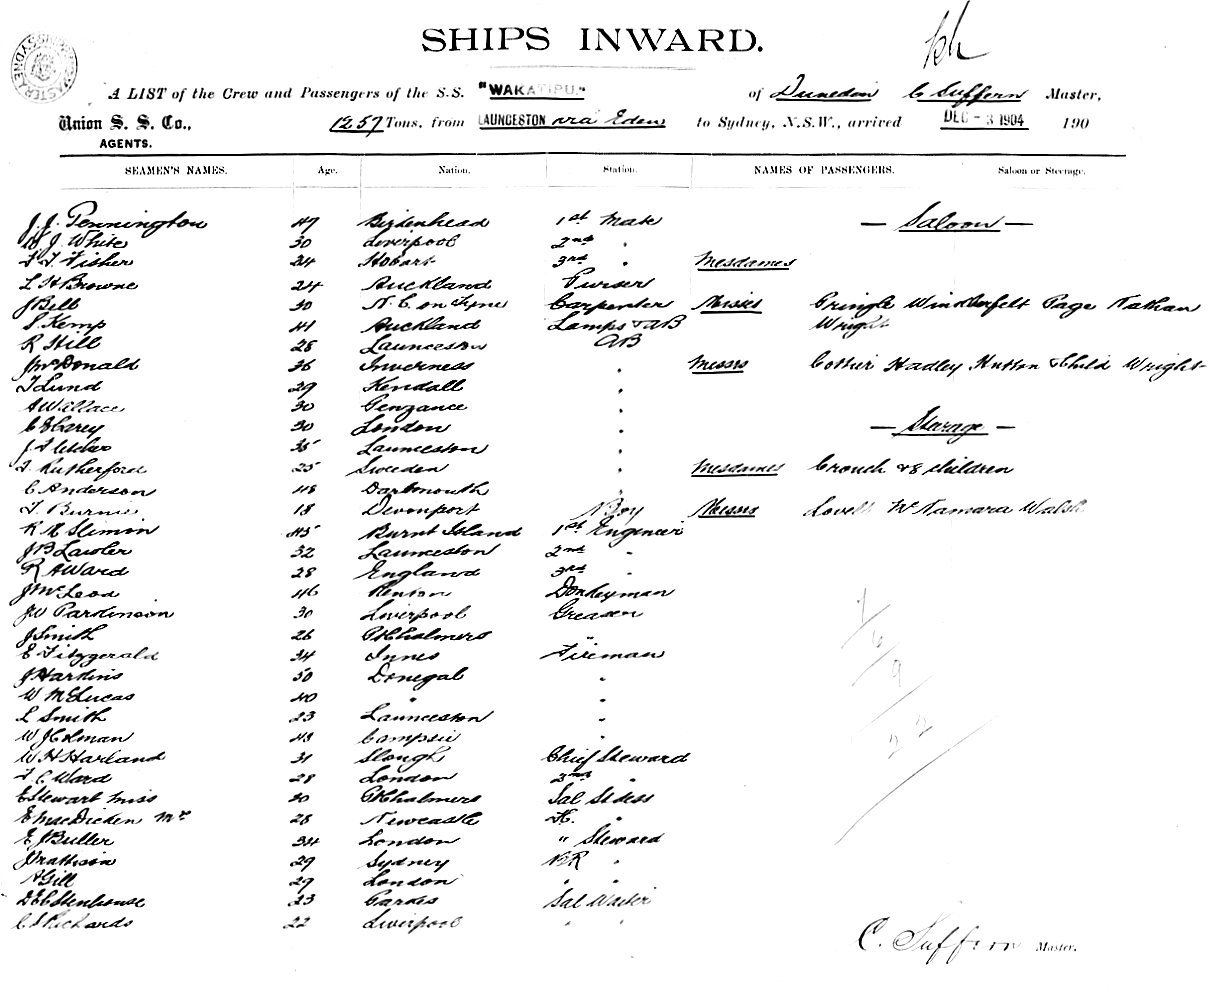 SHIPS INWARD.
A LIST of the Crew and Passengers of the S.S. "WAKATIPU." of Dunedin C Suffern Master,
Union S. S. Co., 1257 Tons, from LAUNCESTON via Eden to Sydney, N.S.W., arrived DEC - 3 1904 190
AGENTS.
SEAMEN'S NAMES. Age. Nation. Station. NAMES OF PASSENGERS. Saloon or Steerage.
J. J. Pennington 47 Birkenhead 1st Mate — Saloon —
J. White 30 Liverpool 2nd "
Fisher 24 Hobart 3rd " Mesdames
L H Browne 24 Auckland Purser
J Bell 30 N. C. on Tyne Carpenter Misses Pringle Page Nathan
Kemp 41 Auckland Lamps & AB Wright
R Hill 28 Launceston AB
J McDonald 36 Inverness " Messrs Hadley Hutton & Child Wright
T Lund 29 Kendall "
A Wallace 30 Penzance "
Carey 30 London " — Sterage —
J Fletcher 35 Launceston "
Rutherford 25 Sweden " Mesdames Crouch & 8 children
C Anderson 48 Dartmouth "
Burnie 18 Devonport Boy Messrs Lovell McNamara Walsh
45 Burnt Island 1st Engineer
J B Lawler 32 Launceston 2nd "
R A Ward 28 England 3rd "
J McLeod 46 Renton Donkeyman
J W Parkinson 30 Liverpool Greaser
J Smith 26 Pt Chalmers "
E Fitzgerald 34 Innes Fireman
J Harkins 50 Donegal "
W McLucas 40 " "
L Smith 23 Launceston "
W J Colman 43 Campsie "
W H Harland 31 Slough Chief Steward
F. C. Ward 28 London 2nd "
E Stewart Miss 30 Pt Chalmers Sal Stdess
28 Newcastle
E J Butler 34 London " Steward
J Mattison 29 Sydney BR "
A Gill 29 London " "
Stenhouse 23 Sal Waiter
C S Richards 22 Liverpool " "
1/6/9/22
C. Suffern Master.